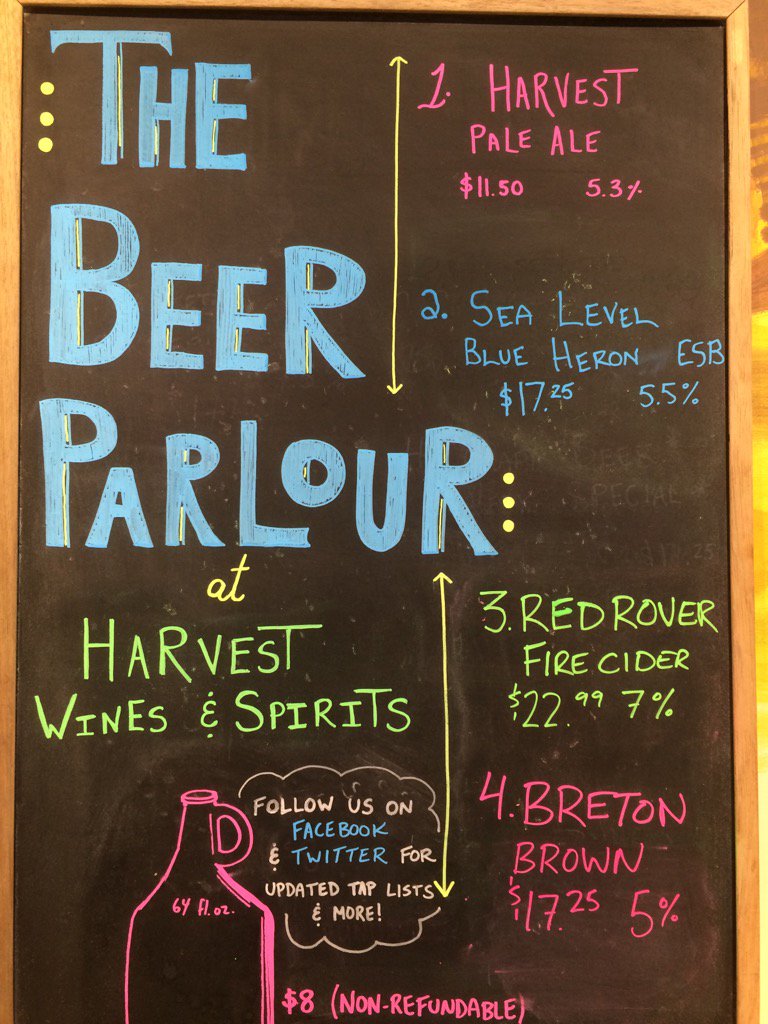 THE
BEER
PARLOUR
at
HARVEST
WINES & SPIRITS
1. HARVEST
PALE ALE
$11.50 5.3%
2. SEA LEVEL
BLUE HERON ESB
$17.25 5.5%
3. RED ROVER
FIRE CIDER
$22.99 7%
4. BRETON
BROWN
$17.25 5%
FOLLOW US ON
FACEBOOK
& TWITTER FOR
UPDATED TAP LISTS
& MORE!
64 fl.oz.
$8 (NON-REFUNDABLE)